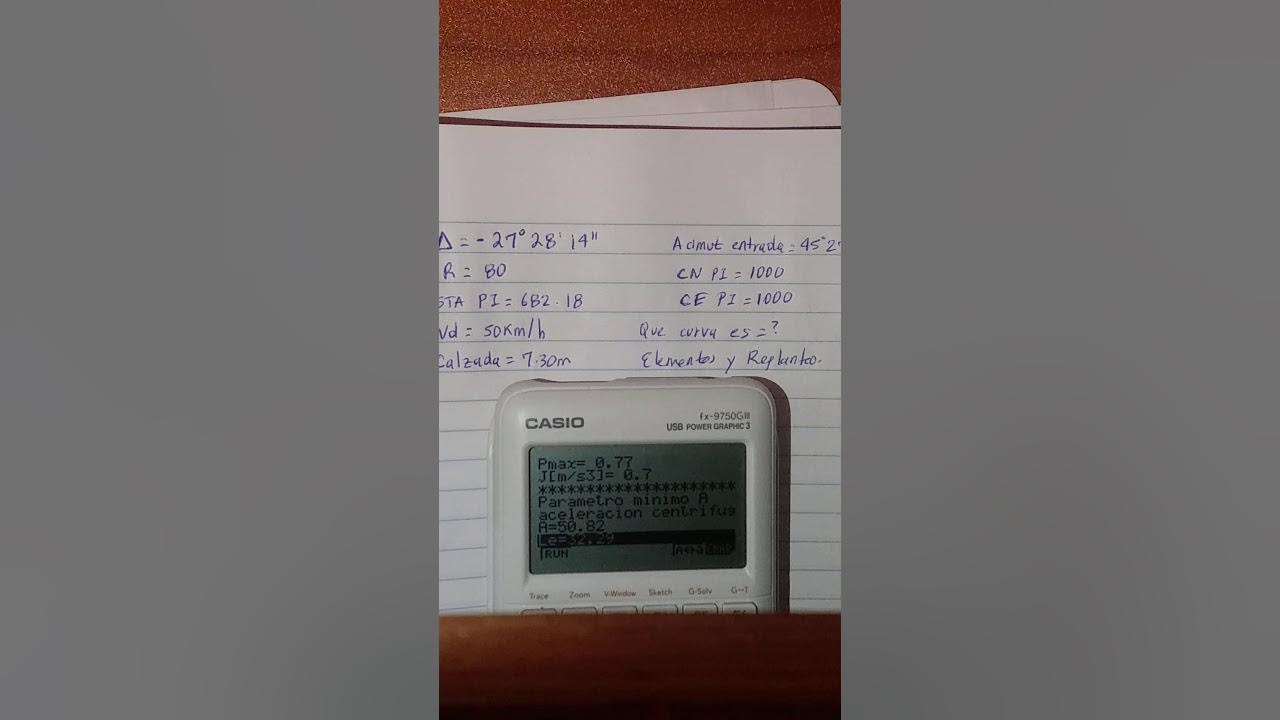 Δ = - 27° 28' 14"
Acimut entrada = 45°2
R = 80
CN PI = 1000
STA PI = 682.18
CE PI = 1000
Vd = 50Km/h
Que curva es = ?
Calzada = 7.30m
Elementos y Replanteo.
CASIO
fx-9750GIII
USB POWER GRAPHIC 3
Pmax= 0.77
J[m/s3]= 0.7
*********************
Parametro minimo A
aceleracion centrifug
A=50.82
Le=32.29
RUN
Trace Zoom V-Window Sketch G-Solv G↔T